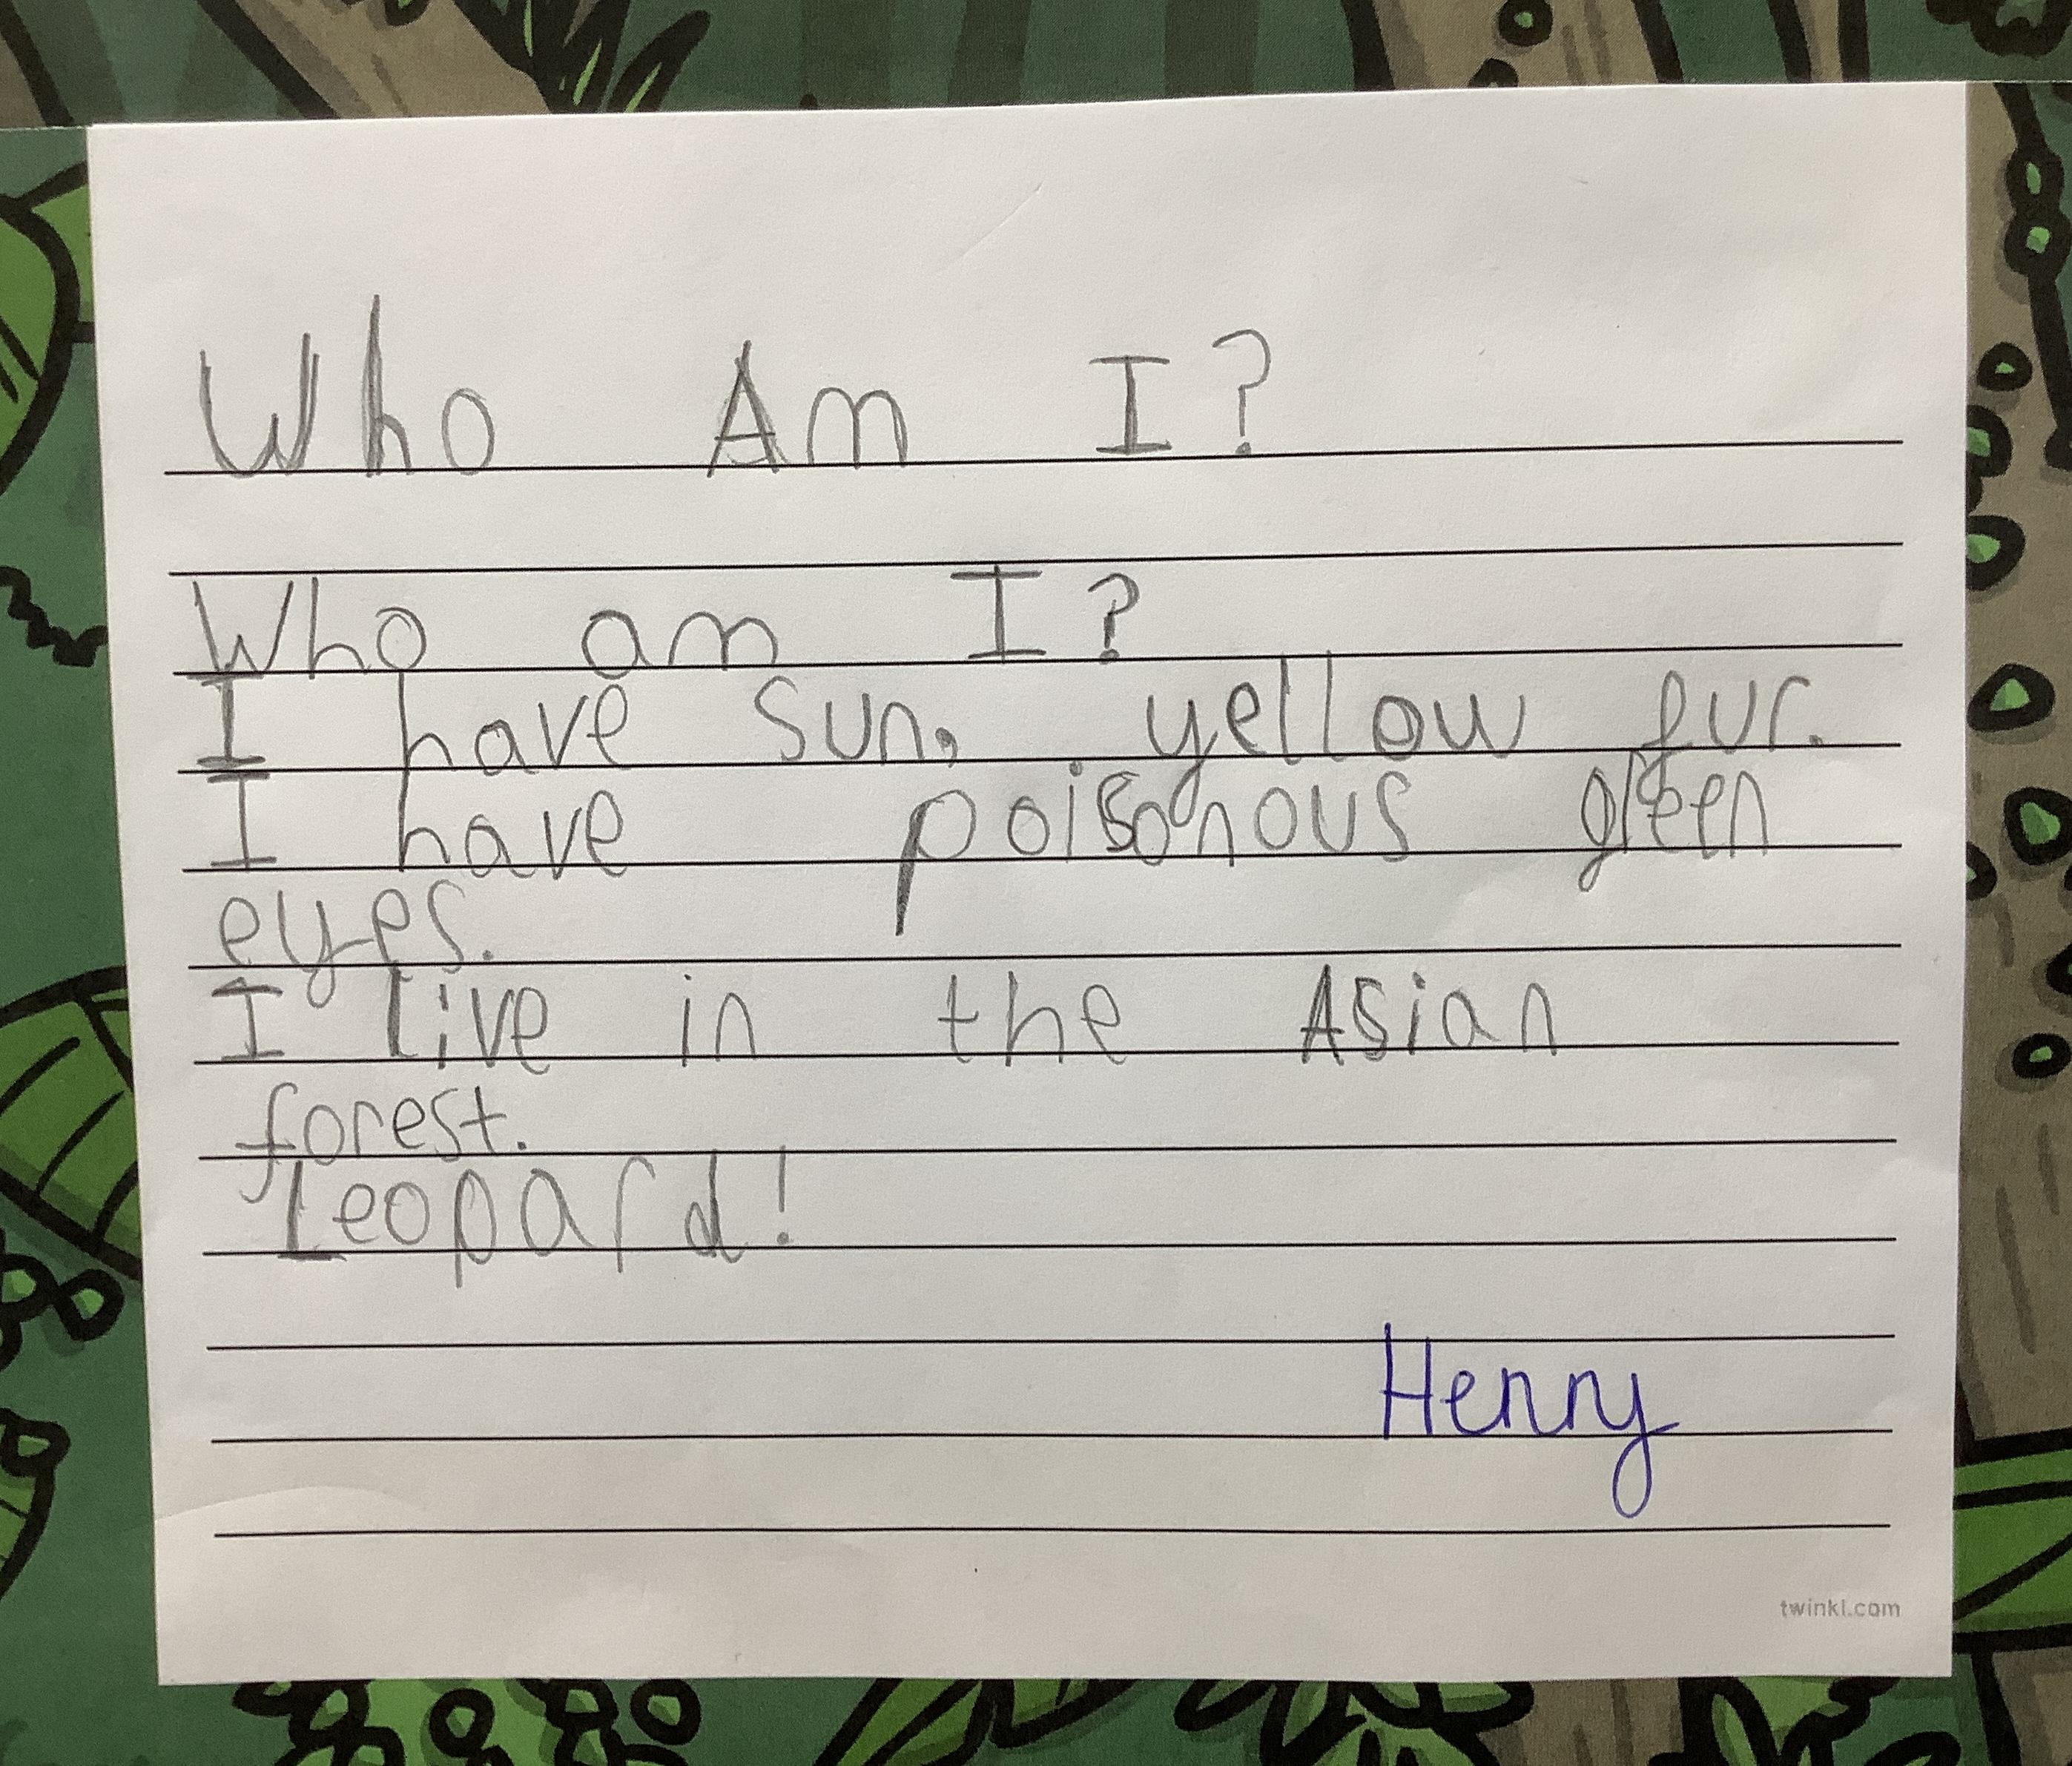 Who Am I?
Who am I?
I have sun, yellow fur.
I have poisonous green
eyes.
I live in the Asian
forest.
Leopard!
Henry
twinkl.com